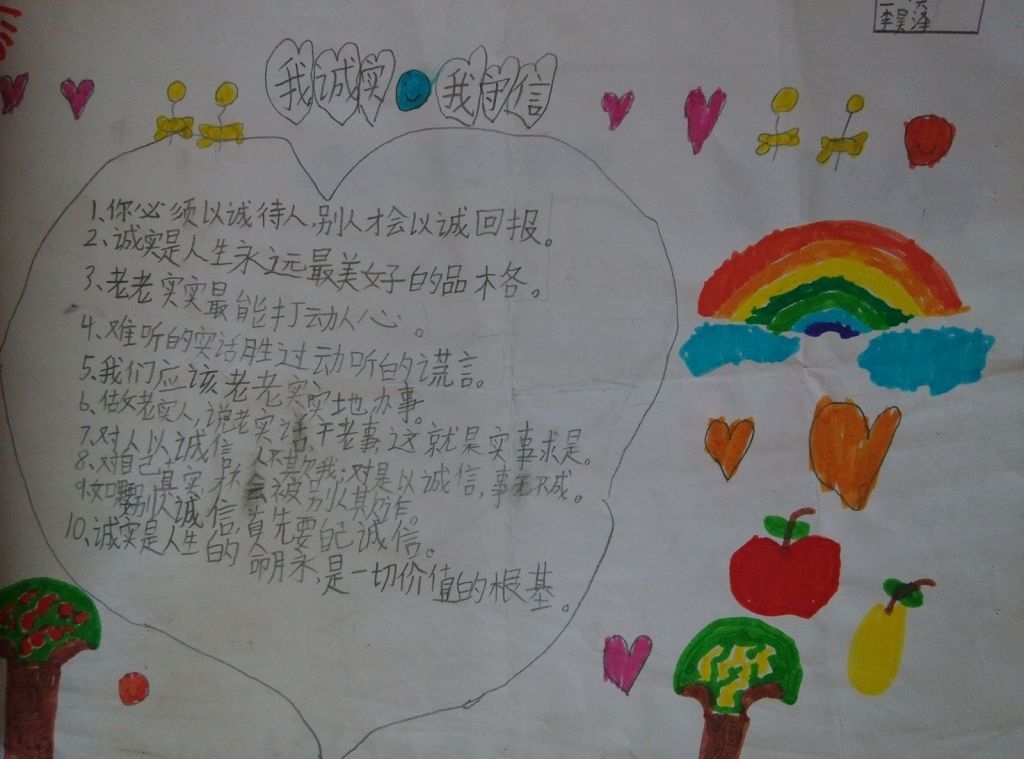 李昊泽
我诚实 我守信
1、你必须以诚待人,别人才会以诚回报。
2、诚实是人生永远最美好的品格。
3、老老实实最能打动人心。
4、难听的实话胜过动听的谎言。
5、我们应该老老实实地办事。
6、做老实人,说老实话,干老事,这就是实事求是。
7、对人以诚信,人不欺我;对是以诚信,事无不成。
8、对自己真实,才会被别人其诈。
要别人诚信,首先要自己诚信。
10、诚实是人生的命脉,是一切价值的根基。